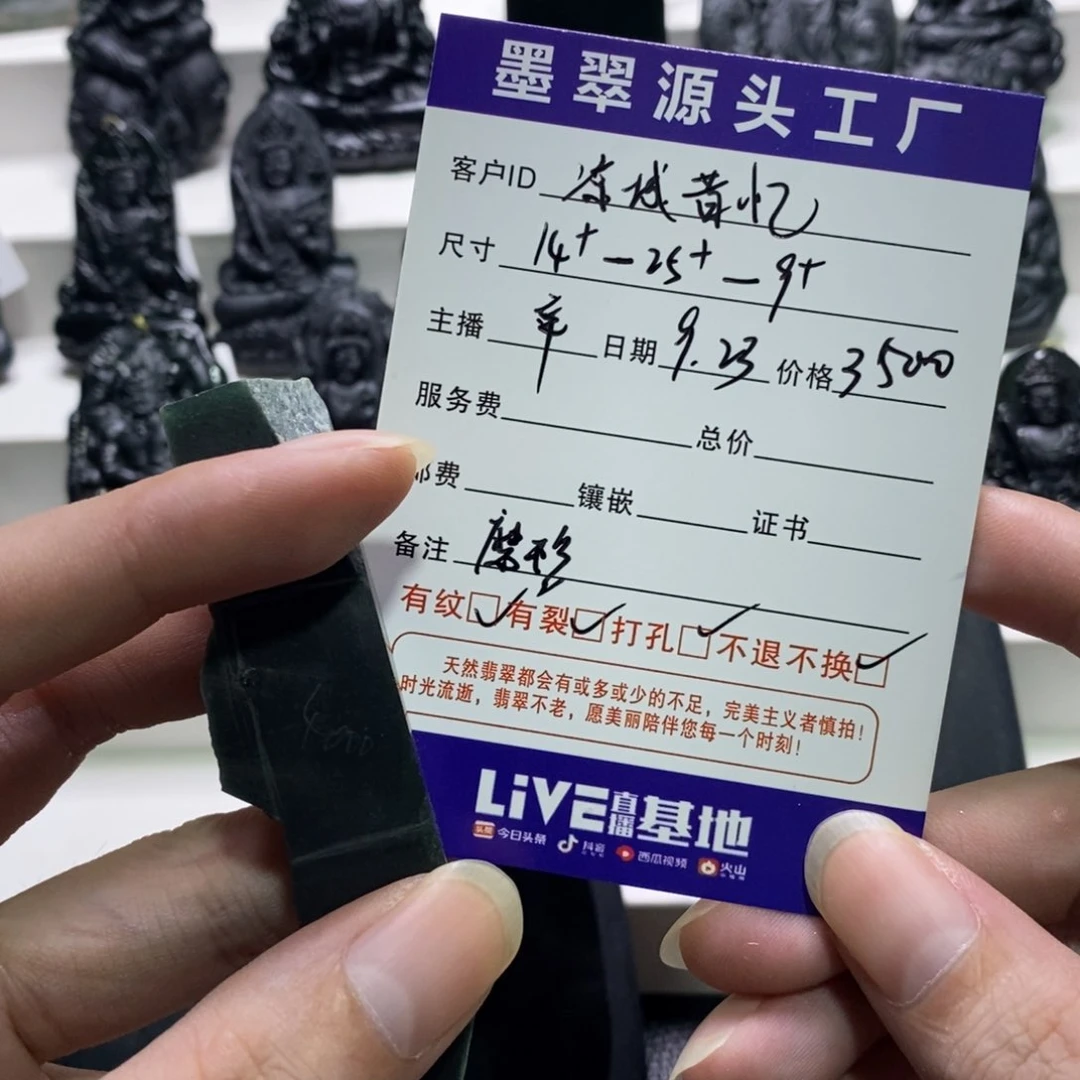 墨翠源头工厂
客户ID 凉城昔忆
尺寸 14+-25+-9+
主播 辛 日期 9.23 价格 3500
服务费 总价
费 镶嵌 证书
备注
有纹 有裂 打孔 不退不换
天然翡翠都会有或多或少的不足，完美主义者慎拍！
时光流逝，翡翠不老，愿美丽陪伴您每一个时刻！
LiVE直播基地
头条 今日头条 抖音 西瓜视频 火山